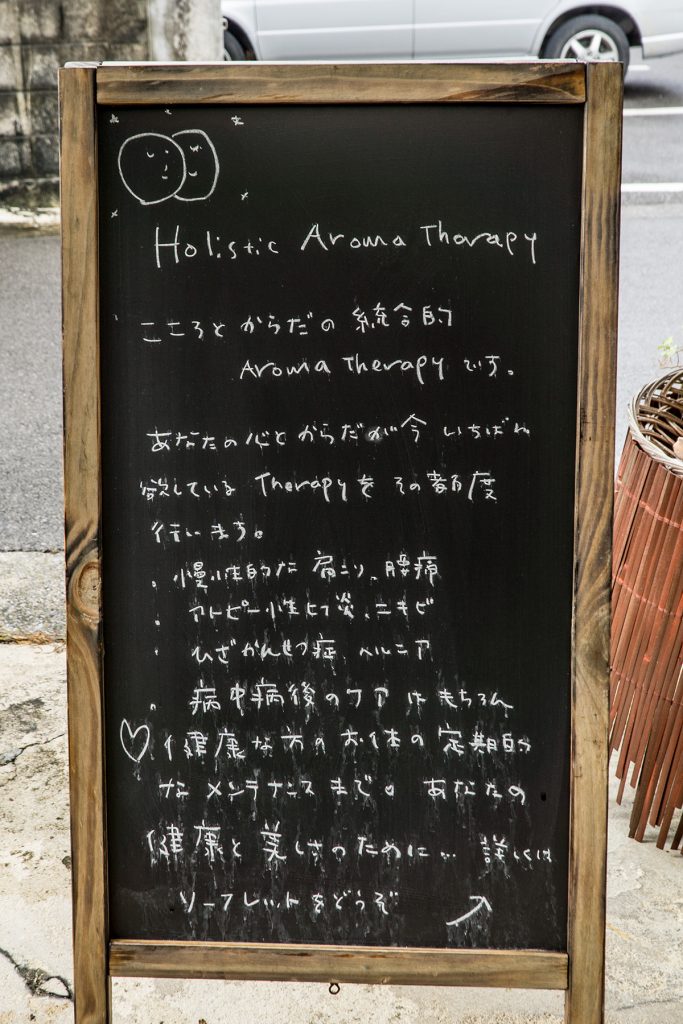 Holistic Aroma Therapy
こころとからだの 統合的
Aroma Therapy です。
あなたの心とからだが今 いちばん
欲している Therapyを その都度
行います。
・慢性的な 肩こり、腰痛
・アトピー性ヒフ炎、ニキビ
・ひざかんせつ症、ヘルニア
・病中病後のケア はもちろん
健康な方の お体の 定期的
な メンテナンスまで。 あなたの
健康と 美しさのために… 詳しくは
リーフレットをどうぞ